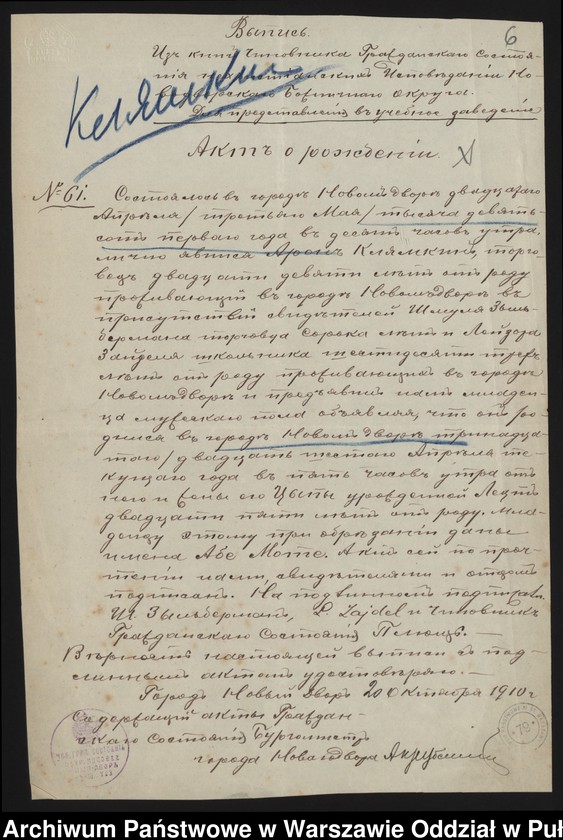 6
Выпись.
Изъ книгъ Чиновника Гражданскаго Состоя-
нія нехристіанскихъ Исповѣданій Но-
водворскаго Божничнаго Округа.
Для представленія въ учебное заведеніе
Клямкинъ
Актъ о рожденіи.
№ 61. Состоялось въ городѣ Новомъ дворѣ двадцатаго
Апрѣля / третьяго Мая / тысяча девять-
сотъ перваго года въ десять часовъ утра,
лично явился Аронъ Клямкинъ, торго-
вецъ двадцати девяти лѣтъ отъ роду
проживающій въ городѣ Новомъ дворѣ въ
присутствіи свидѣтелей Шмуля Зыль-
бермана торговца сорока лѣтъ и Лейзора
Зайделя школьника шестидесяти трехъ
лѣтъ отъ роду проживающихъ въ городѣ
Новомъ дворѣ и предъявилъ намъ младен-
ца мужескаго пола объявляя, что онъ ро-
дился въ городѣ Новомъ дворѣ тринадца-
таго / двадцать шестого Апрѣля те-
кущаго года въ пять часовъ утра отъ
него и жены его Цыпы урожденной
двадцати пяти лѣтъ отъ роду. Мла-
денцу этому при обрѣзаніи даны
имена Абе Мотте. Актъ сей по проч-
теніи нами, свидѣтелями и отцомъ
подписанъ. На подлинномъ подписали
Ш. Зыльберманъ, L. Zajdel и Чиновникъ
Гражданскаго Состоянія
Вѣрность настоящей выписи съ под-
линнымъ актомъ удостовѣряю.
Городъ Новый Дворъ 20 Октября 1910 г
Содержащій акты Граждан-
скаго Состоянія Бургомистръ
города Новаго двора
Archiwum Państwowe w Warszawie Oddział w Puł